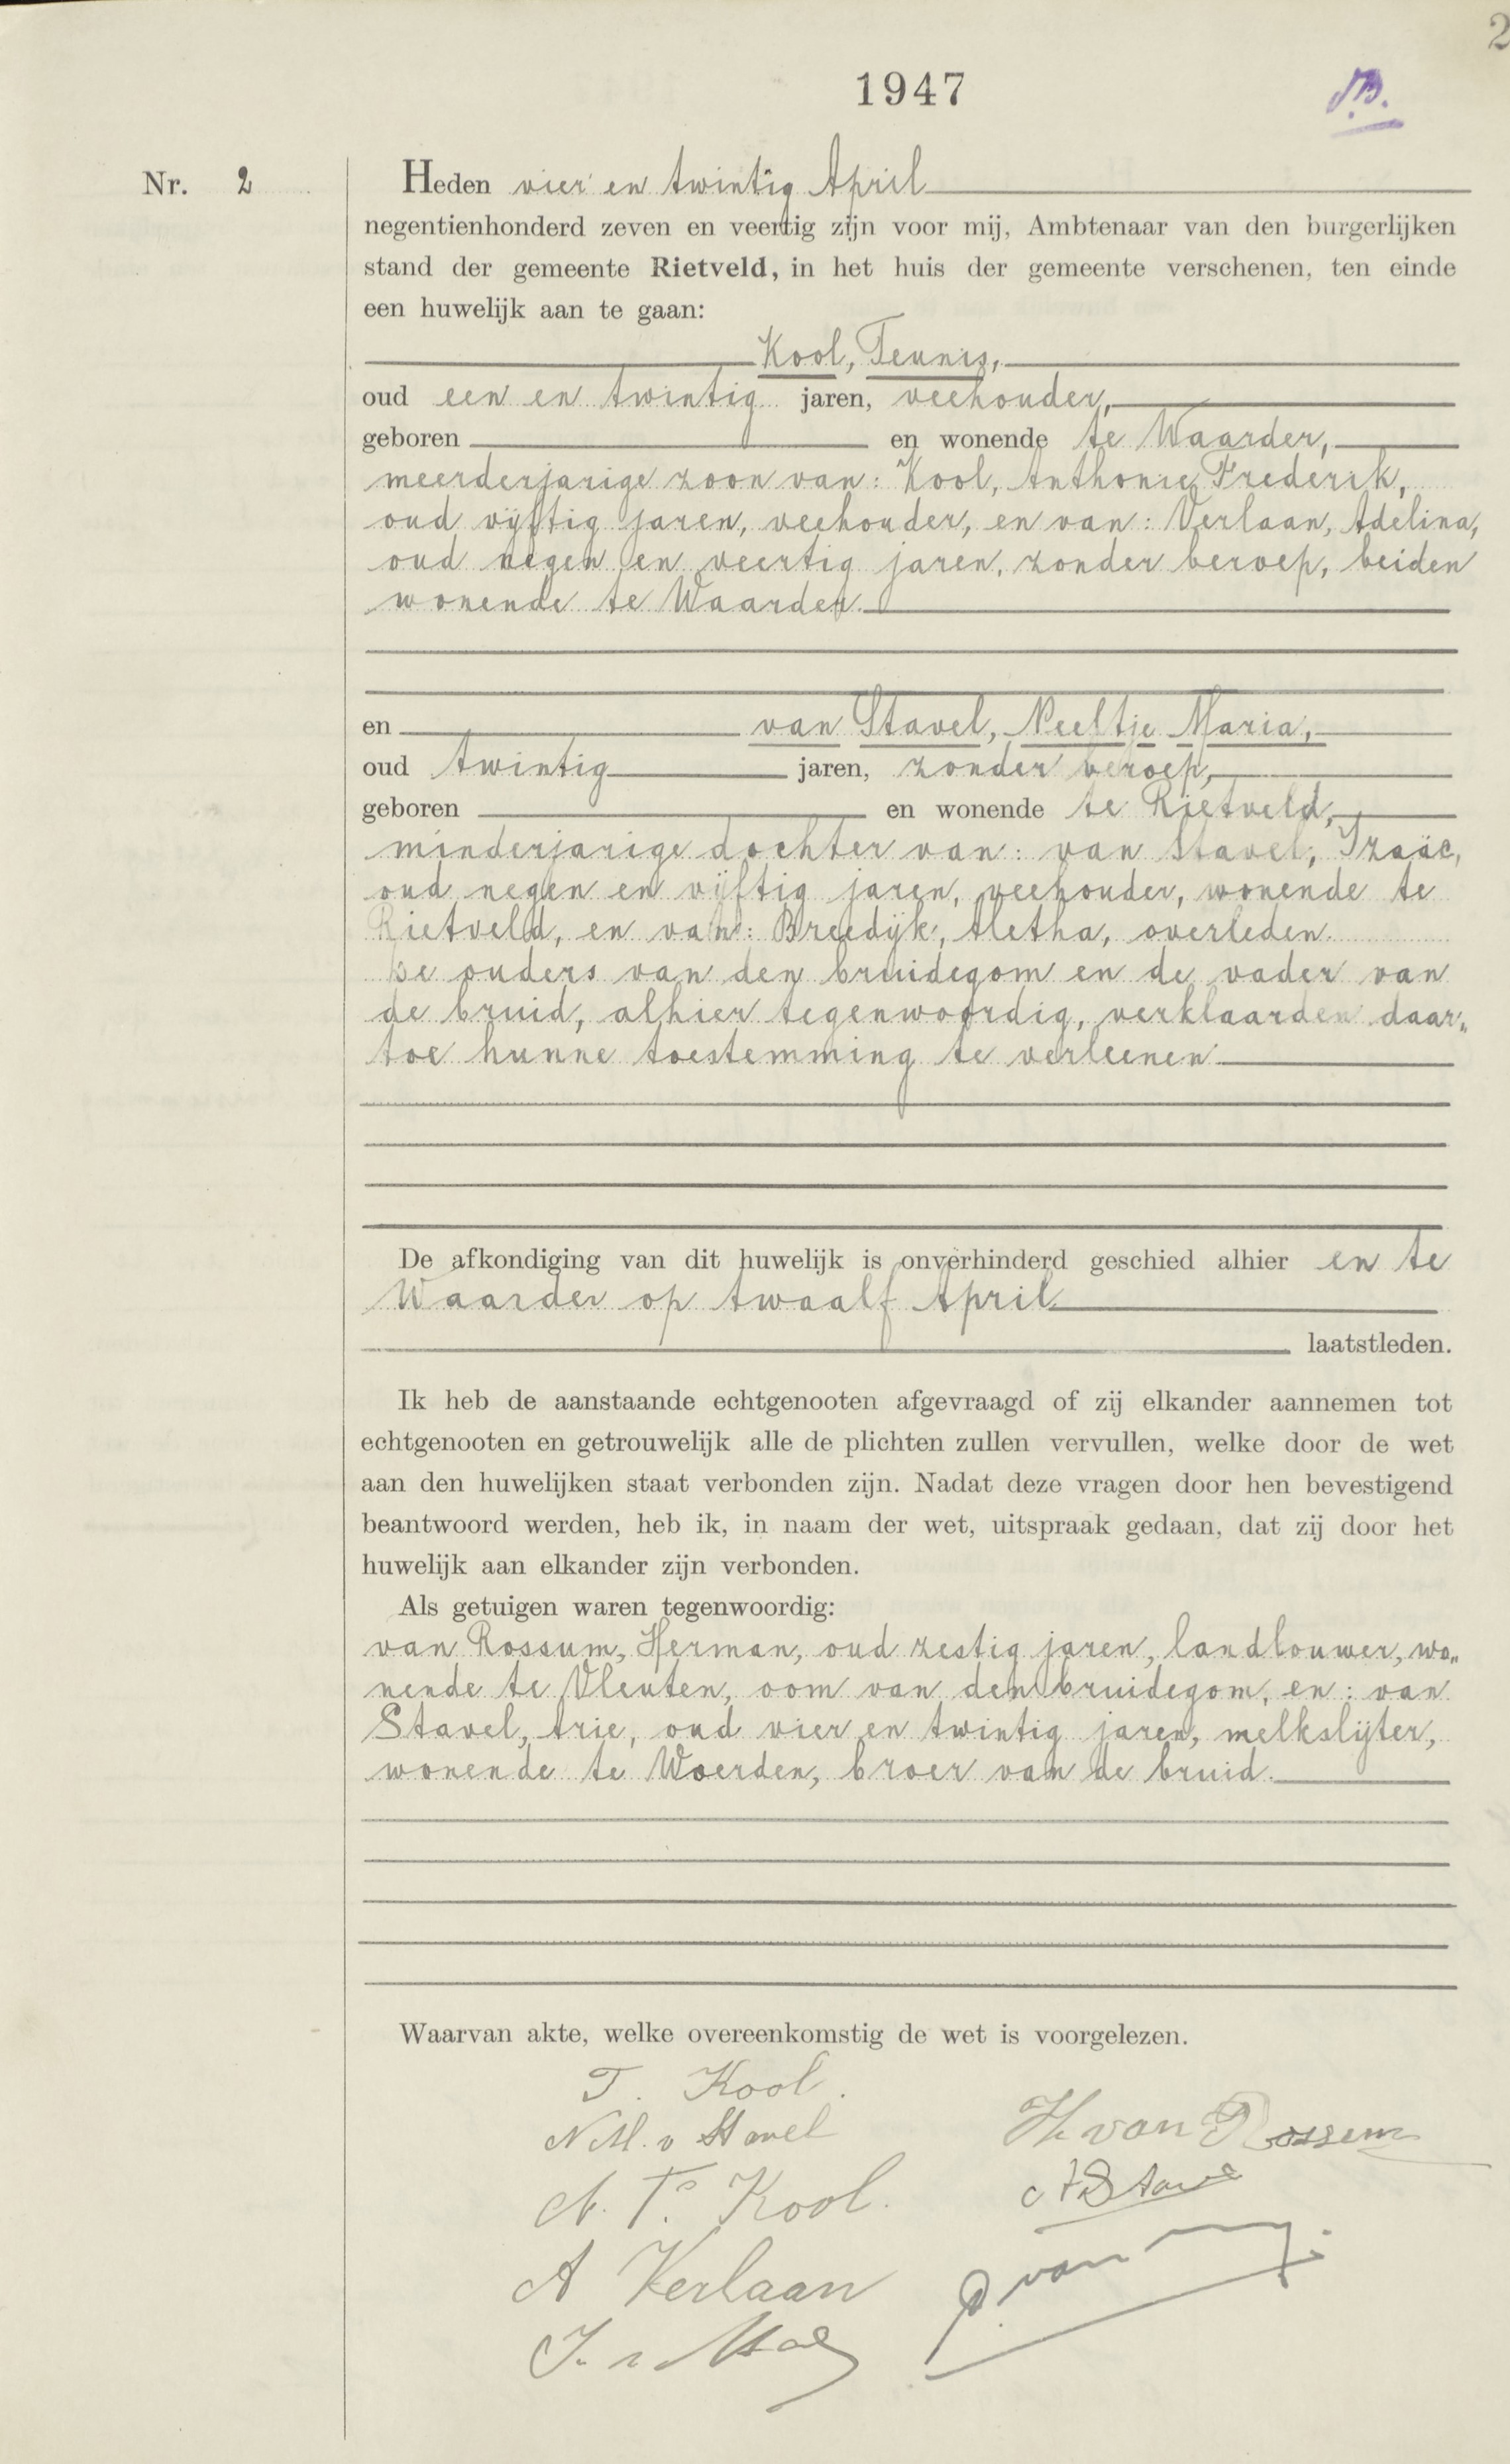 2
1947
Nr. 2
Heden vier en twintig April
negentienhonderd zeven en veertig zijn voor mij, Ambtenaar van den burgerlijken
stand der gemeente Rietveld, in het huis der gemeente verschenen, ten einde
een huwelijk aan te gaan:
Kool, Teunis,
oud een en twintig jaren, veehouder,
geboren en wonende te Waarder,
meerderjarige zoon van: Kool, Anthonie Frederik,
oud vijftig jaren, veehouder, en van: Verlaan, Adelina,
oud negen en veertig jaren, zonder beroep, beiden
wonende te Waarder.
en van Stavel, Neeltje Maria,
oud twintig jaren, zonder beroep,
geboren en wonende te Rietveld,
minderjarige dochter van: van Stavel, Izaäc,
oud negen en vijftig jaren, veehouder, wonende te
Rietveld, en van: Breedijk, Aletha, overleden.
De ouders van den bruidegom en de vader van
de bruid, alhier tegenwoordig, verklaarden daar„
toe hunne toestemming te verleenen
De afkondiging van dit huwelijk is onverhinderd geschied alhier en te
Waarder op twaalf April
laatstleden.
Ik heb de aanstaande echtgenooten afgevraagd of zij elkander aannemen tot
echtgenooten en getrouwelijk alle de plichten zullen vervullen, welke door de wet
aan den huwelijken staat verbonden zijn. Nadat deze vragen door hen bevestigend
beantwoord werden, heb ik, in naam der wet, uitspraak gedaan, dat zij door het
huwelijk aan elkander zijn verbonden.
Als getuigen waren tegenwoordig:
van Rossum, Herman, oud zestig jaren, landbouwer, wo„
nende te Vleuten, oom van den bruidegom, en: van
Stavel, Arie, oud vier en twintig jaren, melkslijter,
wonende te Woerden, broer van de bruid.
Waarvan akte, welke overeenkomstig de wet is voorgelezen.
T. Kool.
N M. v Stavel
H. van Rossem
A. F. Kool.
A Verlaan
van